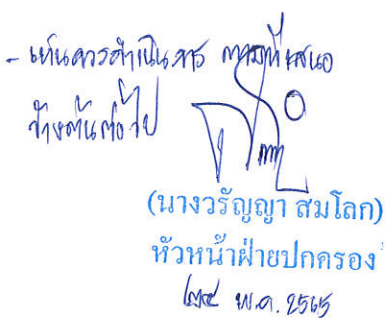 - เห็นควรดำเนินการ ตามที่เสนอ
ข้างต้นต่อไป
(นางวรัญญา สมโลก)
หัวหน้าฝ่ายปกครอง
๒๔ พ.ค. 2565